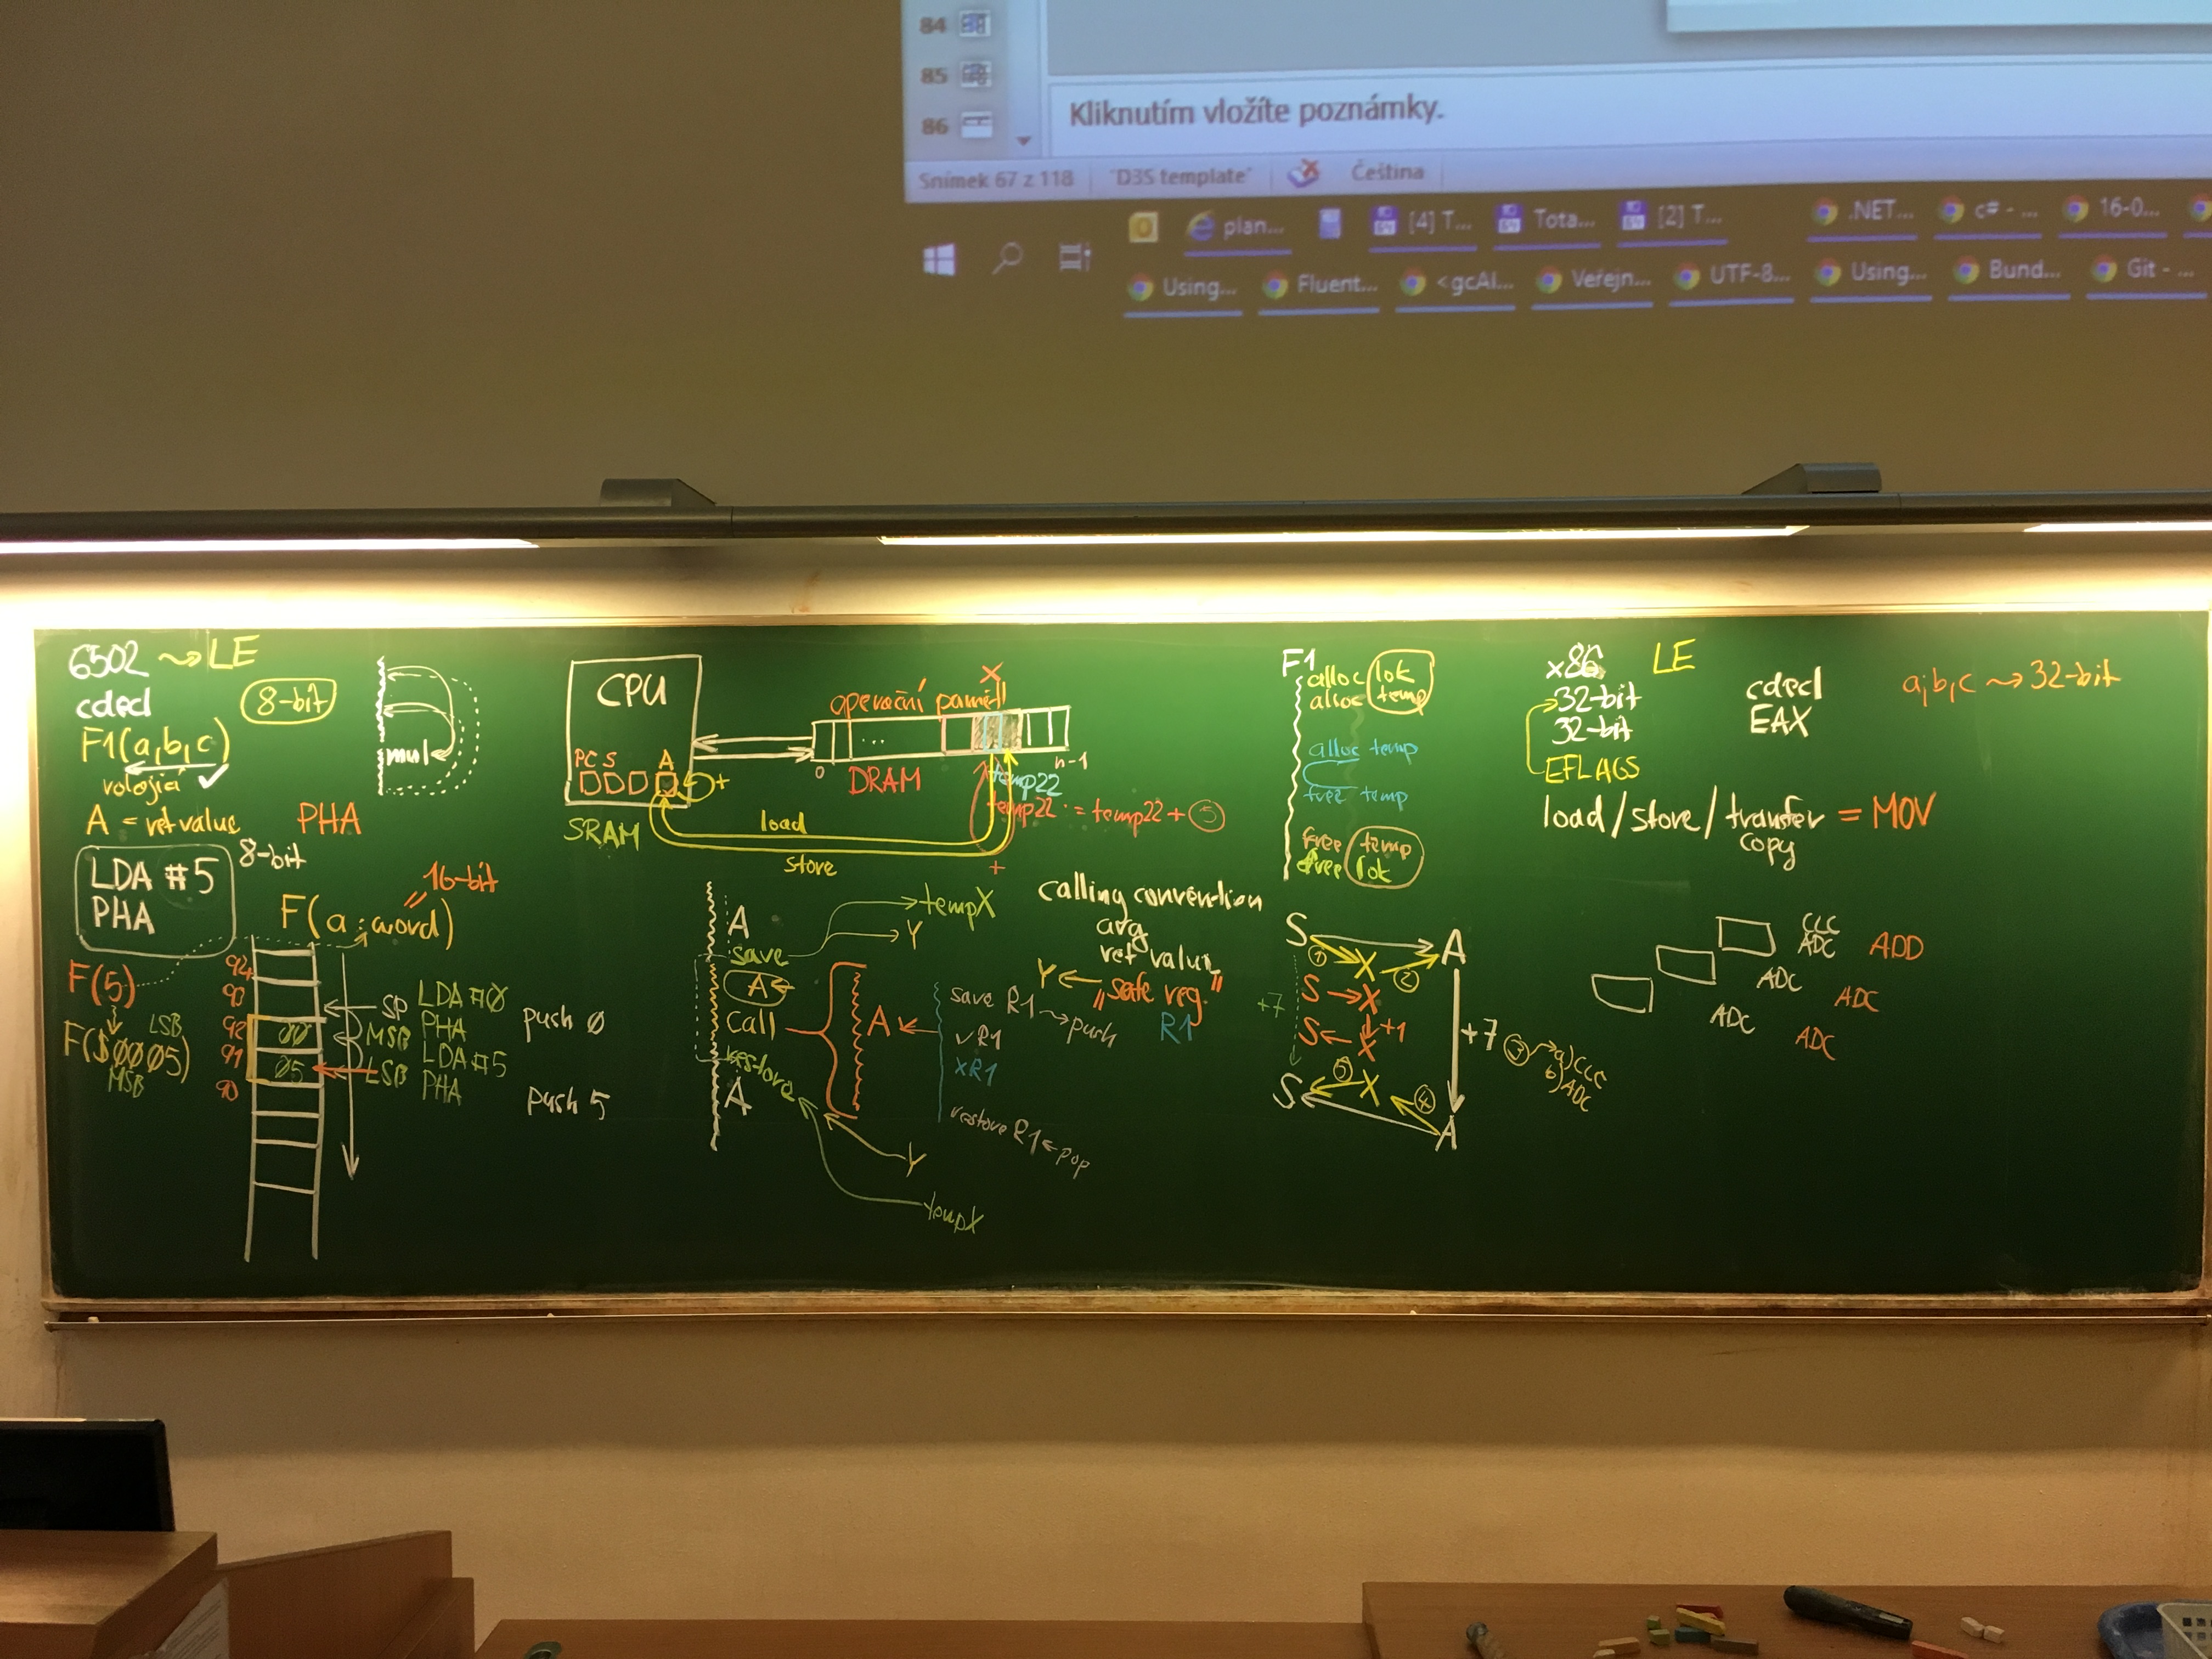 84
85
86
Kliknutím vložíte poznámky.
Snímek 67 z 118
"D3S template"
Čeština
plan...
[4] T...
Tota...
[2] T...
.NET...
c# - ...
16-0...
Using...
Fluent...
<gcAl...
Veřejn...
UTF-8...
Using...
Bund...
Git - ...
6502 ⇝ LE
cdecl
8-bit
F1(a,b,c)
volající ✓
A = ret value
PHA
LDA #5
PHA
8-bit
16-bit
F(a:word)
F(5)
LSB
F($0005)
MSB
94
93
92
91
90
00
05
SP
MSB
LSB
LDA #0
PHA
LDA #5
PHA
push 0
push 5
mul
CPU
PC S
A
+
SRAM
load
store
operační paměť
X
...
0
n-1
DRAM
temp22
temp22 := temp22 + 5
+
A
save
A
call
restore
A
tempX
Y
A
Y
tempX
calling convention
arg
ret value
Y ← "safe reg."
R1
save R1 ⇝ push
✓R1
xR1
restore R1 ← pop
F1
alloc lok
alloc temp
alloc temp
free temp
free temp
free lok
S
A
① X ②
S → X
+7
+1
S ← X
+7 ③ a) CLC
b) ADC
S ⑤ X ④
A
x86 LE
32-bit
32-bit
EFLAGS
cdecl
EAX
a,b,c ⇝ 32-bit
load/store/transfer = MOV
copy
CLC
ADC
ADD
ADC
ADC
ADC
ADC